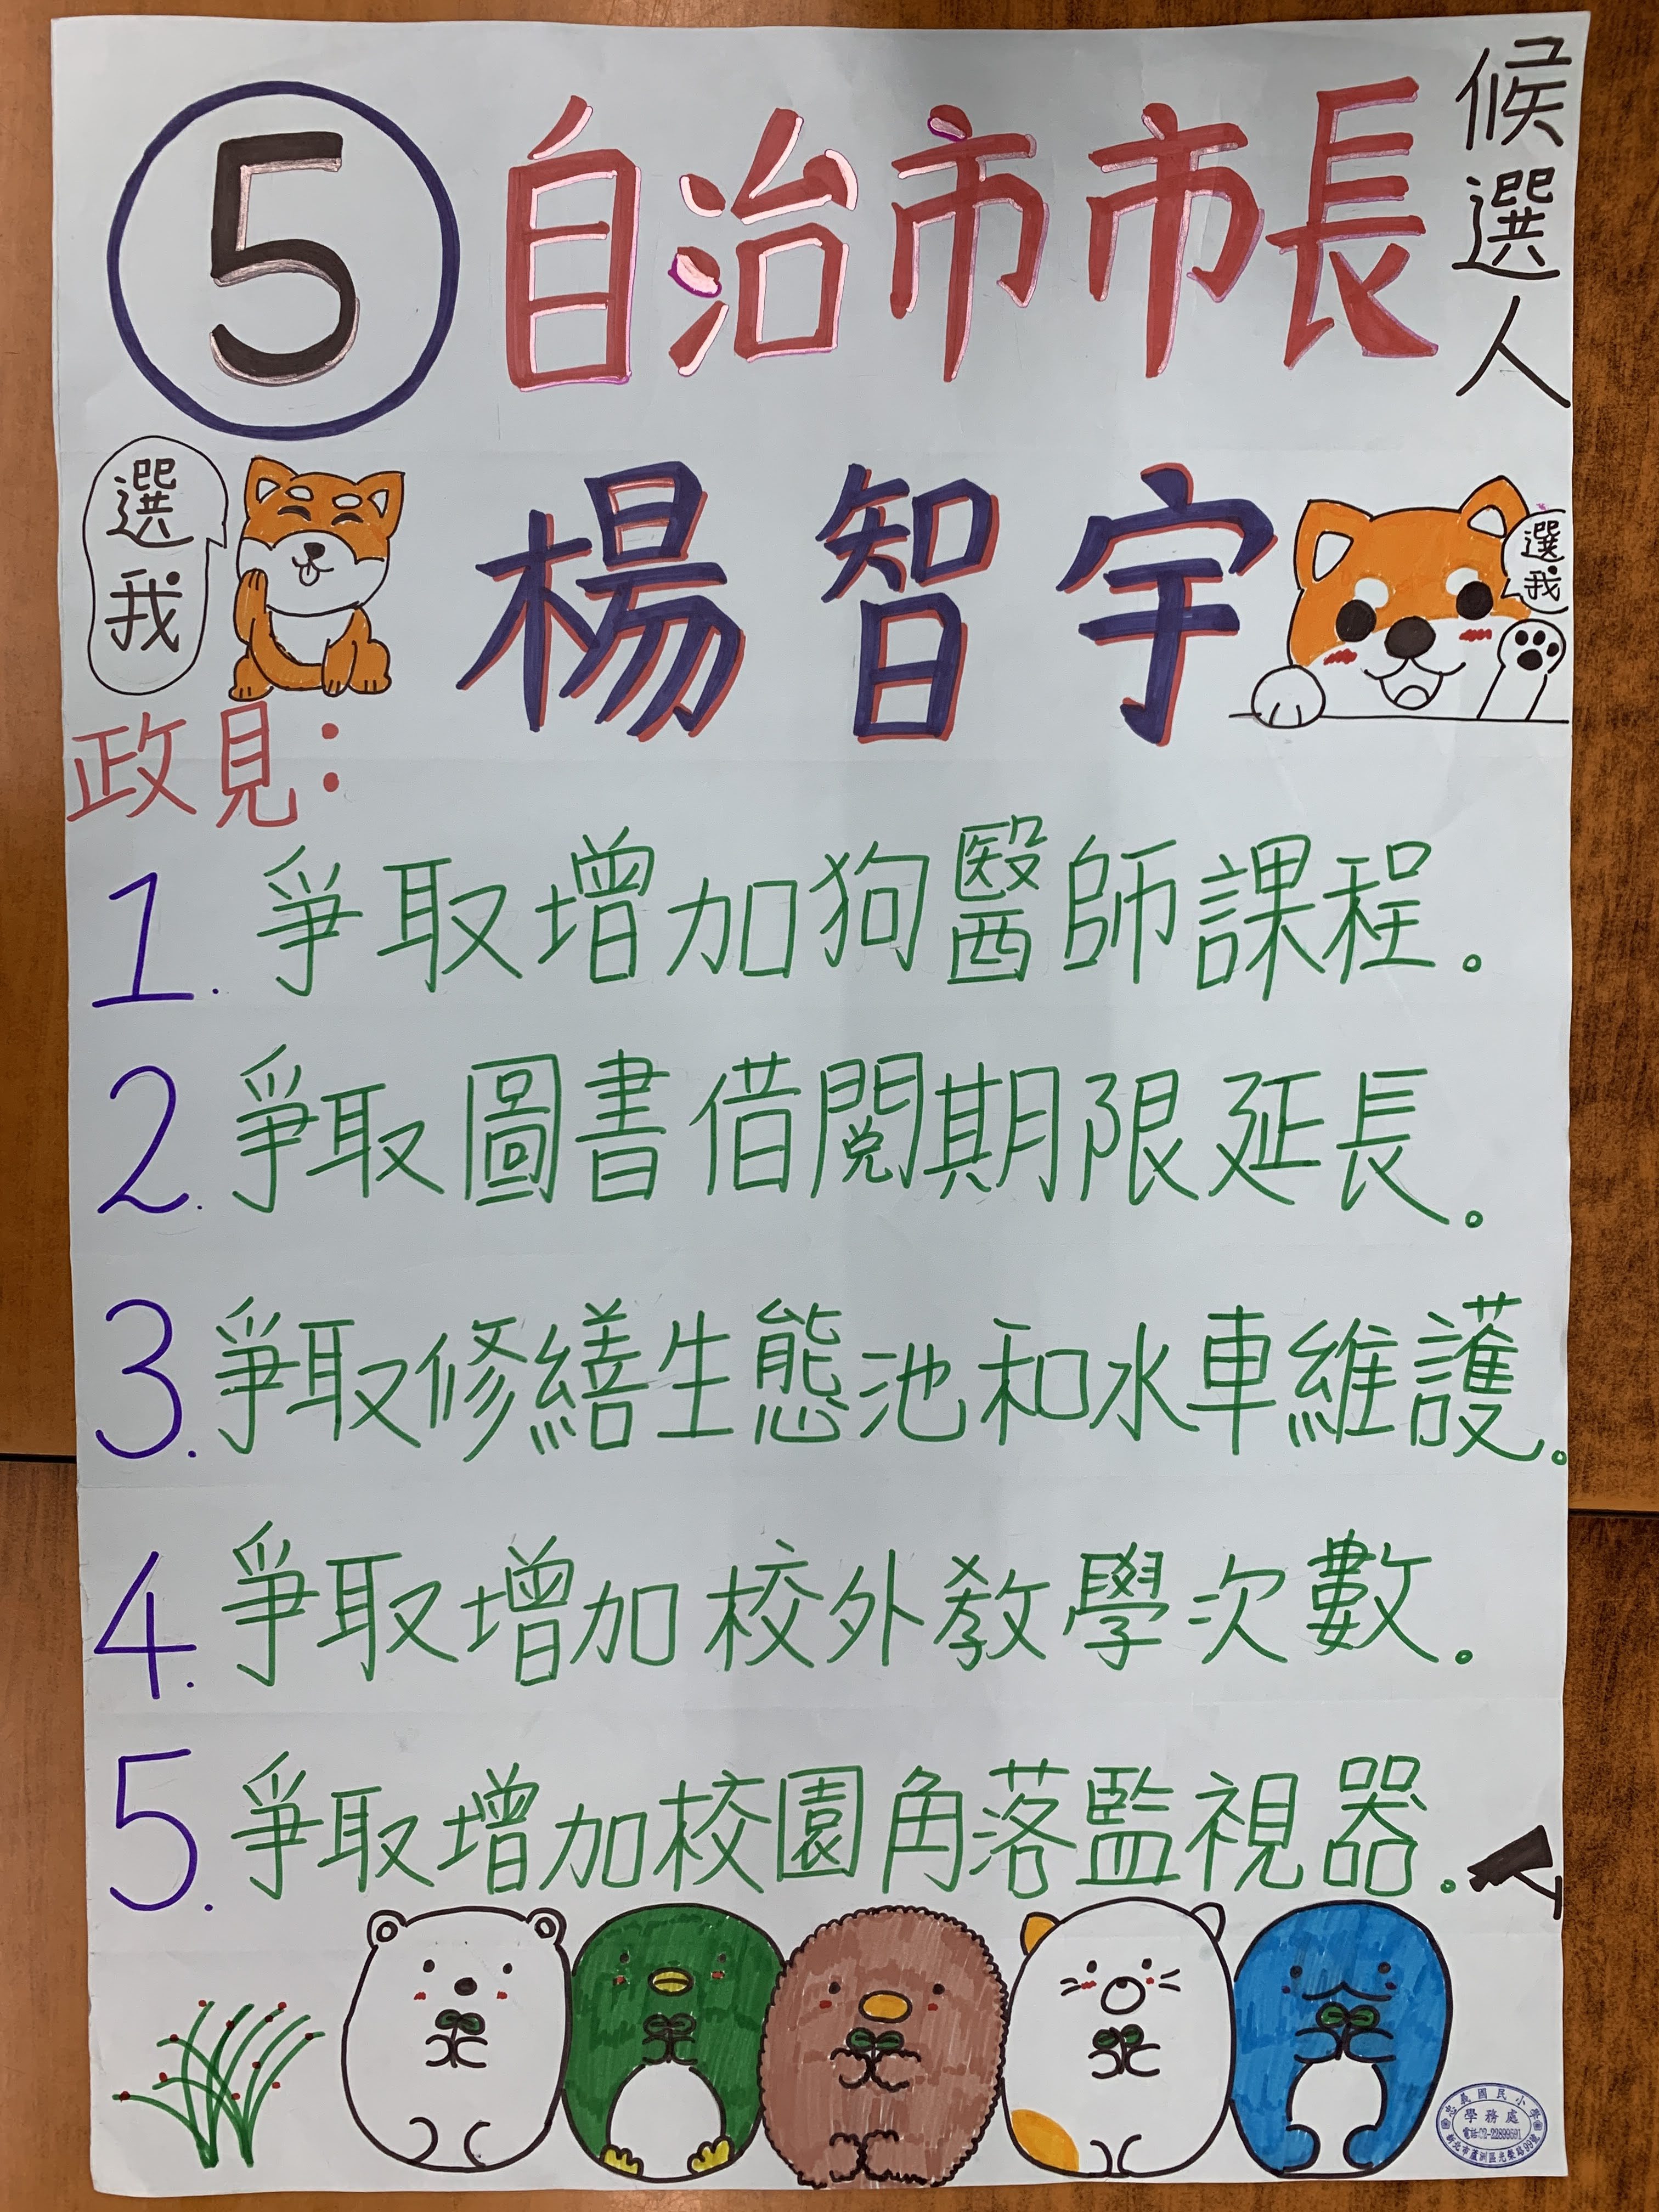 5
自治市市長
候選人
選我
楊智宇
選我
政見：
1. 爭取增加狗醫師課程。
2. 爭取圖書借閱期限延長。
3. 爭取修繕生態池和水車維護。
4. 爭取增加校外教學次數。
5. 爭取增加校園角落監視器。
忠義國民小學
學務處
電話02-22899591
新北市蘆洲區光榮路99號